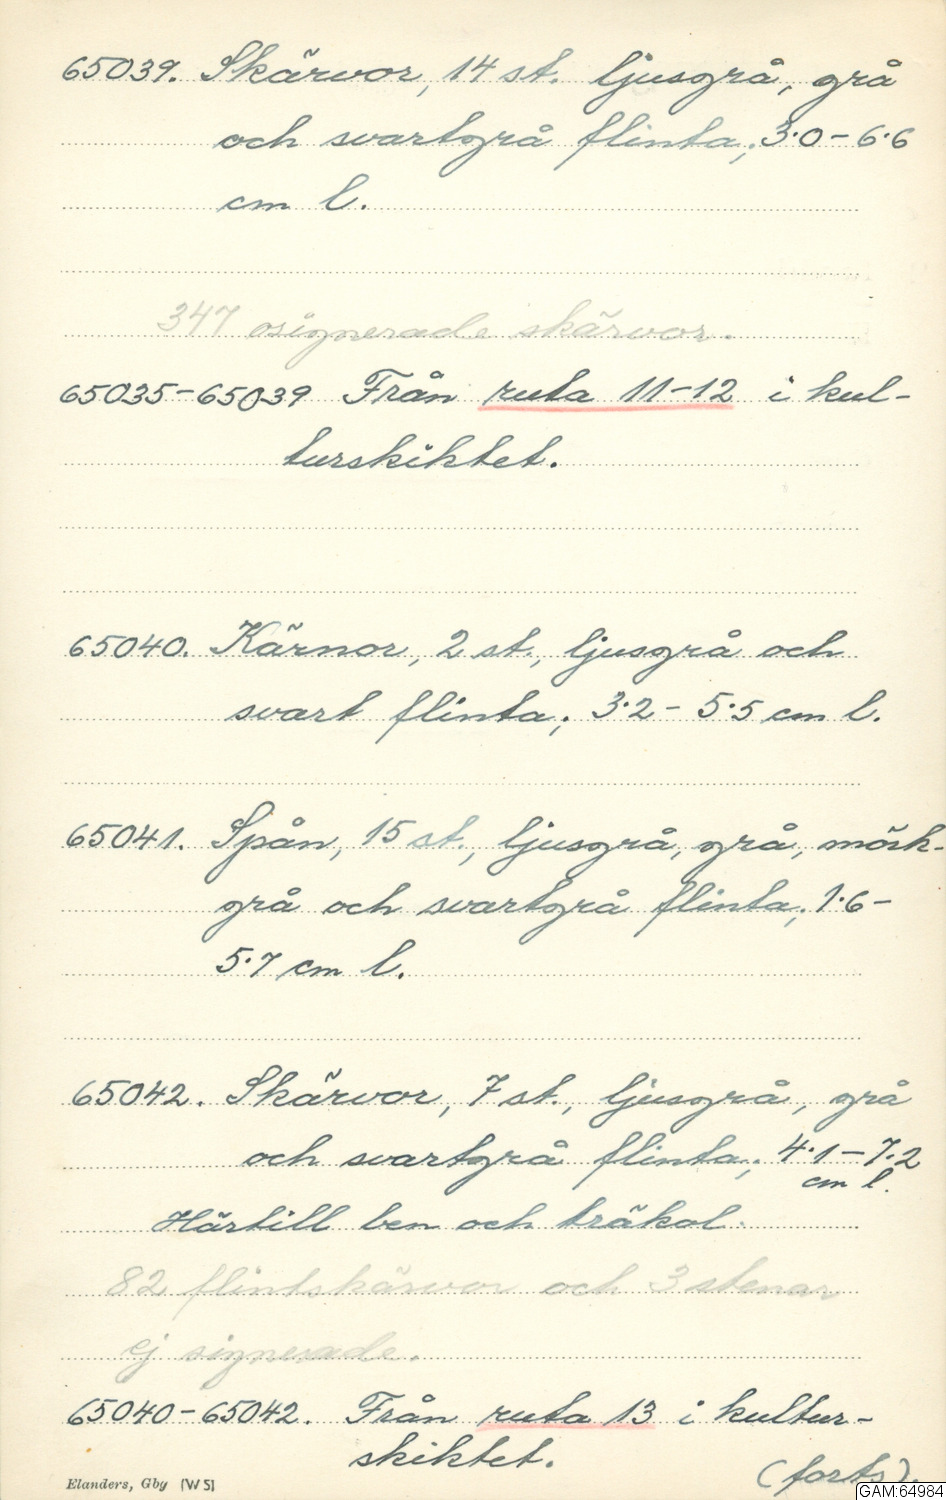 65039. Skärvor, 14 st. ljusgrå, grå
och svartgrå flinta; 3·0 – 6·6
cm l.
347 osignerade skärvor.
65035–65039 Från ruta 11–12 i kul-
turskiktet.
65040. Kärnor, 2 st., ljusgrå och
svart flinta; 3·2 – 5·5 cm l.
65041. Spån, 15 st., ljusgrå, grå, mörk-
grå och svartgrå flinta; 1·6 –
5·7 cm l.
65042. Skärvor, 7 st., ljusgrå, grå
och svartgrå flinta; 4·1 – 7·2
cm l.
Härtill ben och träkol.
82 flintskärvor och 3 stenar
ej signerade.
65040–65042. Från ruta 13 i kultur-
skiktet.
(forts).
Elanders, Gby [W 5]
GAM:64984